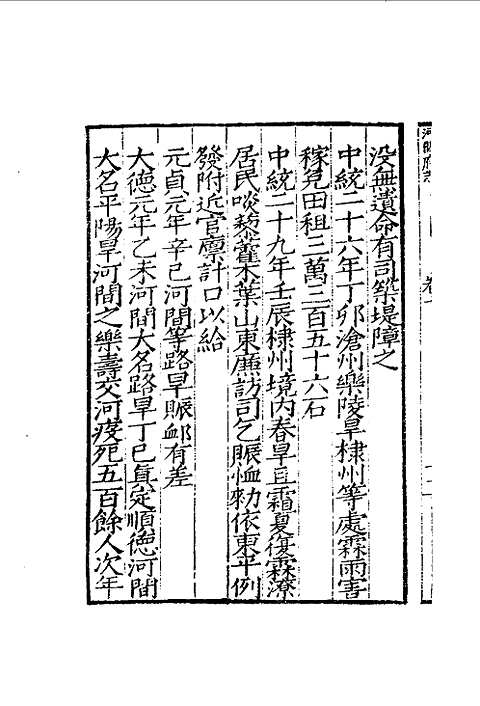 没無遺命有司築堤障之
中統二十六年丁卯滄州樂陵旱棣州等處霖雨害
稼免田租三萬三百五十六石
中統二十九年壬辰棣州境内春旱且霜夏復霖潦
居民啖藜藿木葉山東㢘訪司乞賑恤勑依東平例
發附近官廪計口以給
元貞元年辛已河間等路旱賑邮有差
大德元年乙未河間大名路旱丁已真定順德河間
大名平陽旱河間之樂壽交河疫死五百餘人次年
河間府志
卷